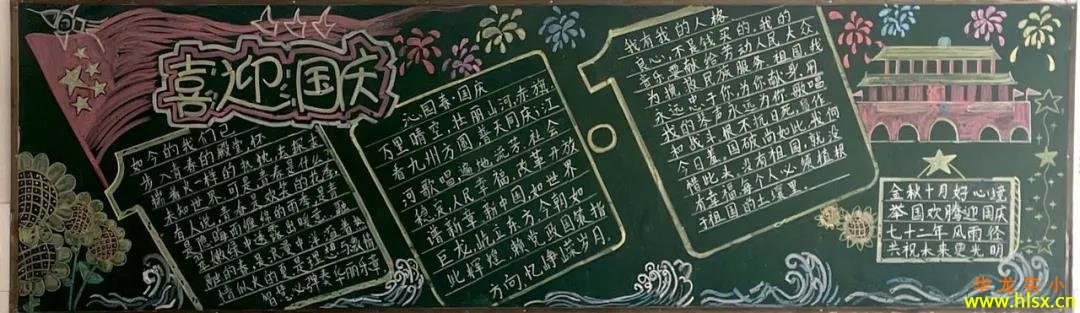 喜迎国庆
如今的我们已
步入青春的殿堂,怀
揣着火一样的热忱,去探求
未知世界,可是青春是什么
有人说,青春是欢笑的花季,
智慧,必弹奏华丽乐章
沁园春·国庆
万里晴空,壮丽山河,赤旗
看九州方圆,普天同庆;江
河歌唱,遍地流芳,社会
稳定,人民幸福,改革开放
谱新章,新中国,如世界
巨龙,屹立东方。今朝如
此辉煌,赖党政国策指
方向,忆峥嵘岁月.
我有我的人格
良心,不是钱买的,我的
音乐,要献给劳动人民大众
为挽救民族服务,祖国,我
永远忠于你,为你献身,用
我的琴声永远为你歌唱
和战斗,恨不抗日死,留作
今日羞,国破尚如此,我何
惜此头,没有祖国,就没
有幸福,每个人必须植根
于祖国的土壤里
金秋十月好心境
举国欢腾迎国庆
七十二年风雨径
共祝未来更光明
华龙实小
www.hlsx.cn